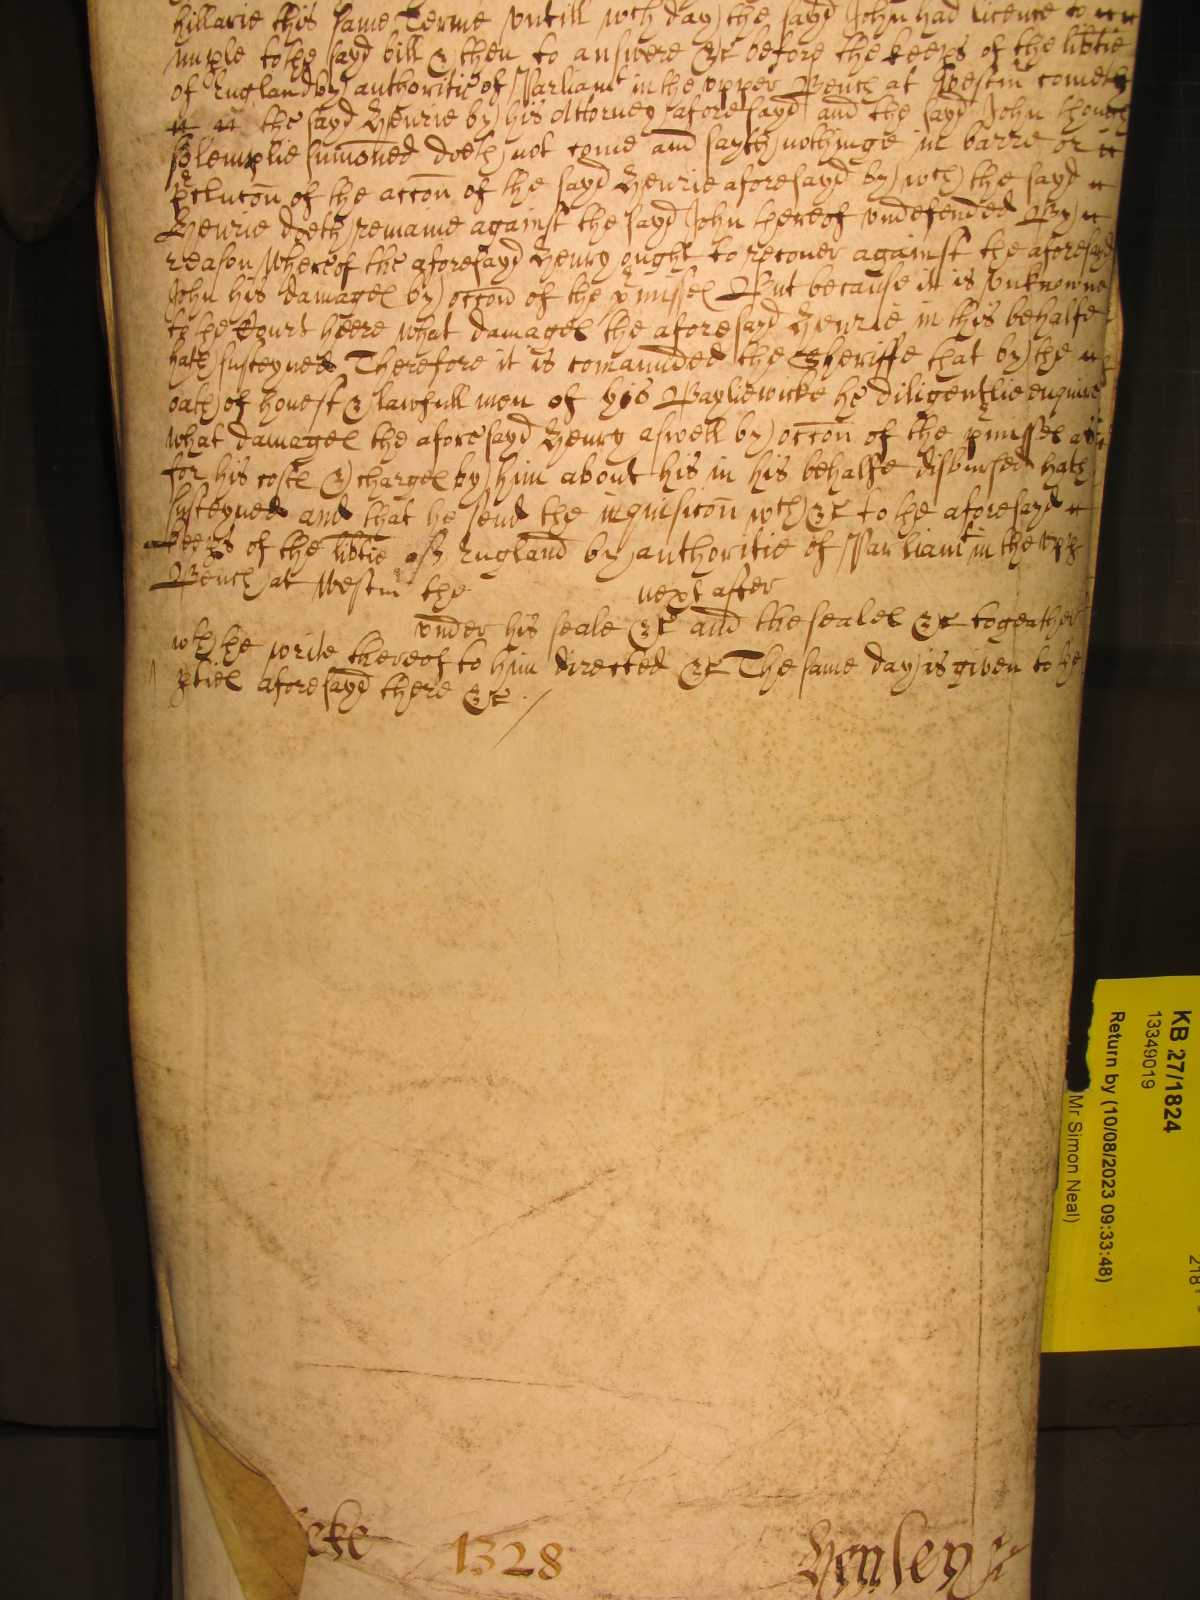 hillarie this same Terme untill wch day the sayd John had licence to
imple to the sayd bill & then to answere &c before the keeps of the libtie
of England by authoritie of Parliamt in the upper Bench at Westm cometh
the sayd Henrie by his Attorney aforesayd and the sayd John though
solemplie sumoned doeth not come and sayth nothinge in barre or
pclucon of the accon of the sayd Henrie aforesayd by wch the sayd
Henrie doeth remaine against the sayd John thereof undefended By
reason whereof the aforesayd Henry ought to recover against the aforesayd
John his damages by occon of the pmisses But because it is unknowne
to the Court heere what damages the aforesayd Henrie in this behalfe
hath susteyned Therefore it is comainded the Sheriffe that by the
oath of honest & lawfull men of his Bayliewicke he diligentlie enquire
what damages the aforesayd Henry aswell by occon of the pmisses as
for his costs & charges by him about his in his behalfe disbursed hath
susteyned and that he send the inquisicon wch &c to the aforesayd
keeps of the libtie of England by authoritie of Parliamt in the upp
Bench at Westm the next after
under his seale &c and the seales &c togeather
wth the write thereof to him directed &c The same day is given to the
pties aforesayd there &c
1328
Henley
KB 27/1824
13349019
Return by (10/08/2023 09:33:48)
Mr Simon Neal)